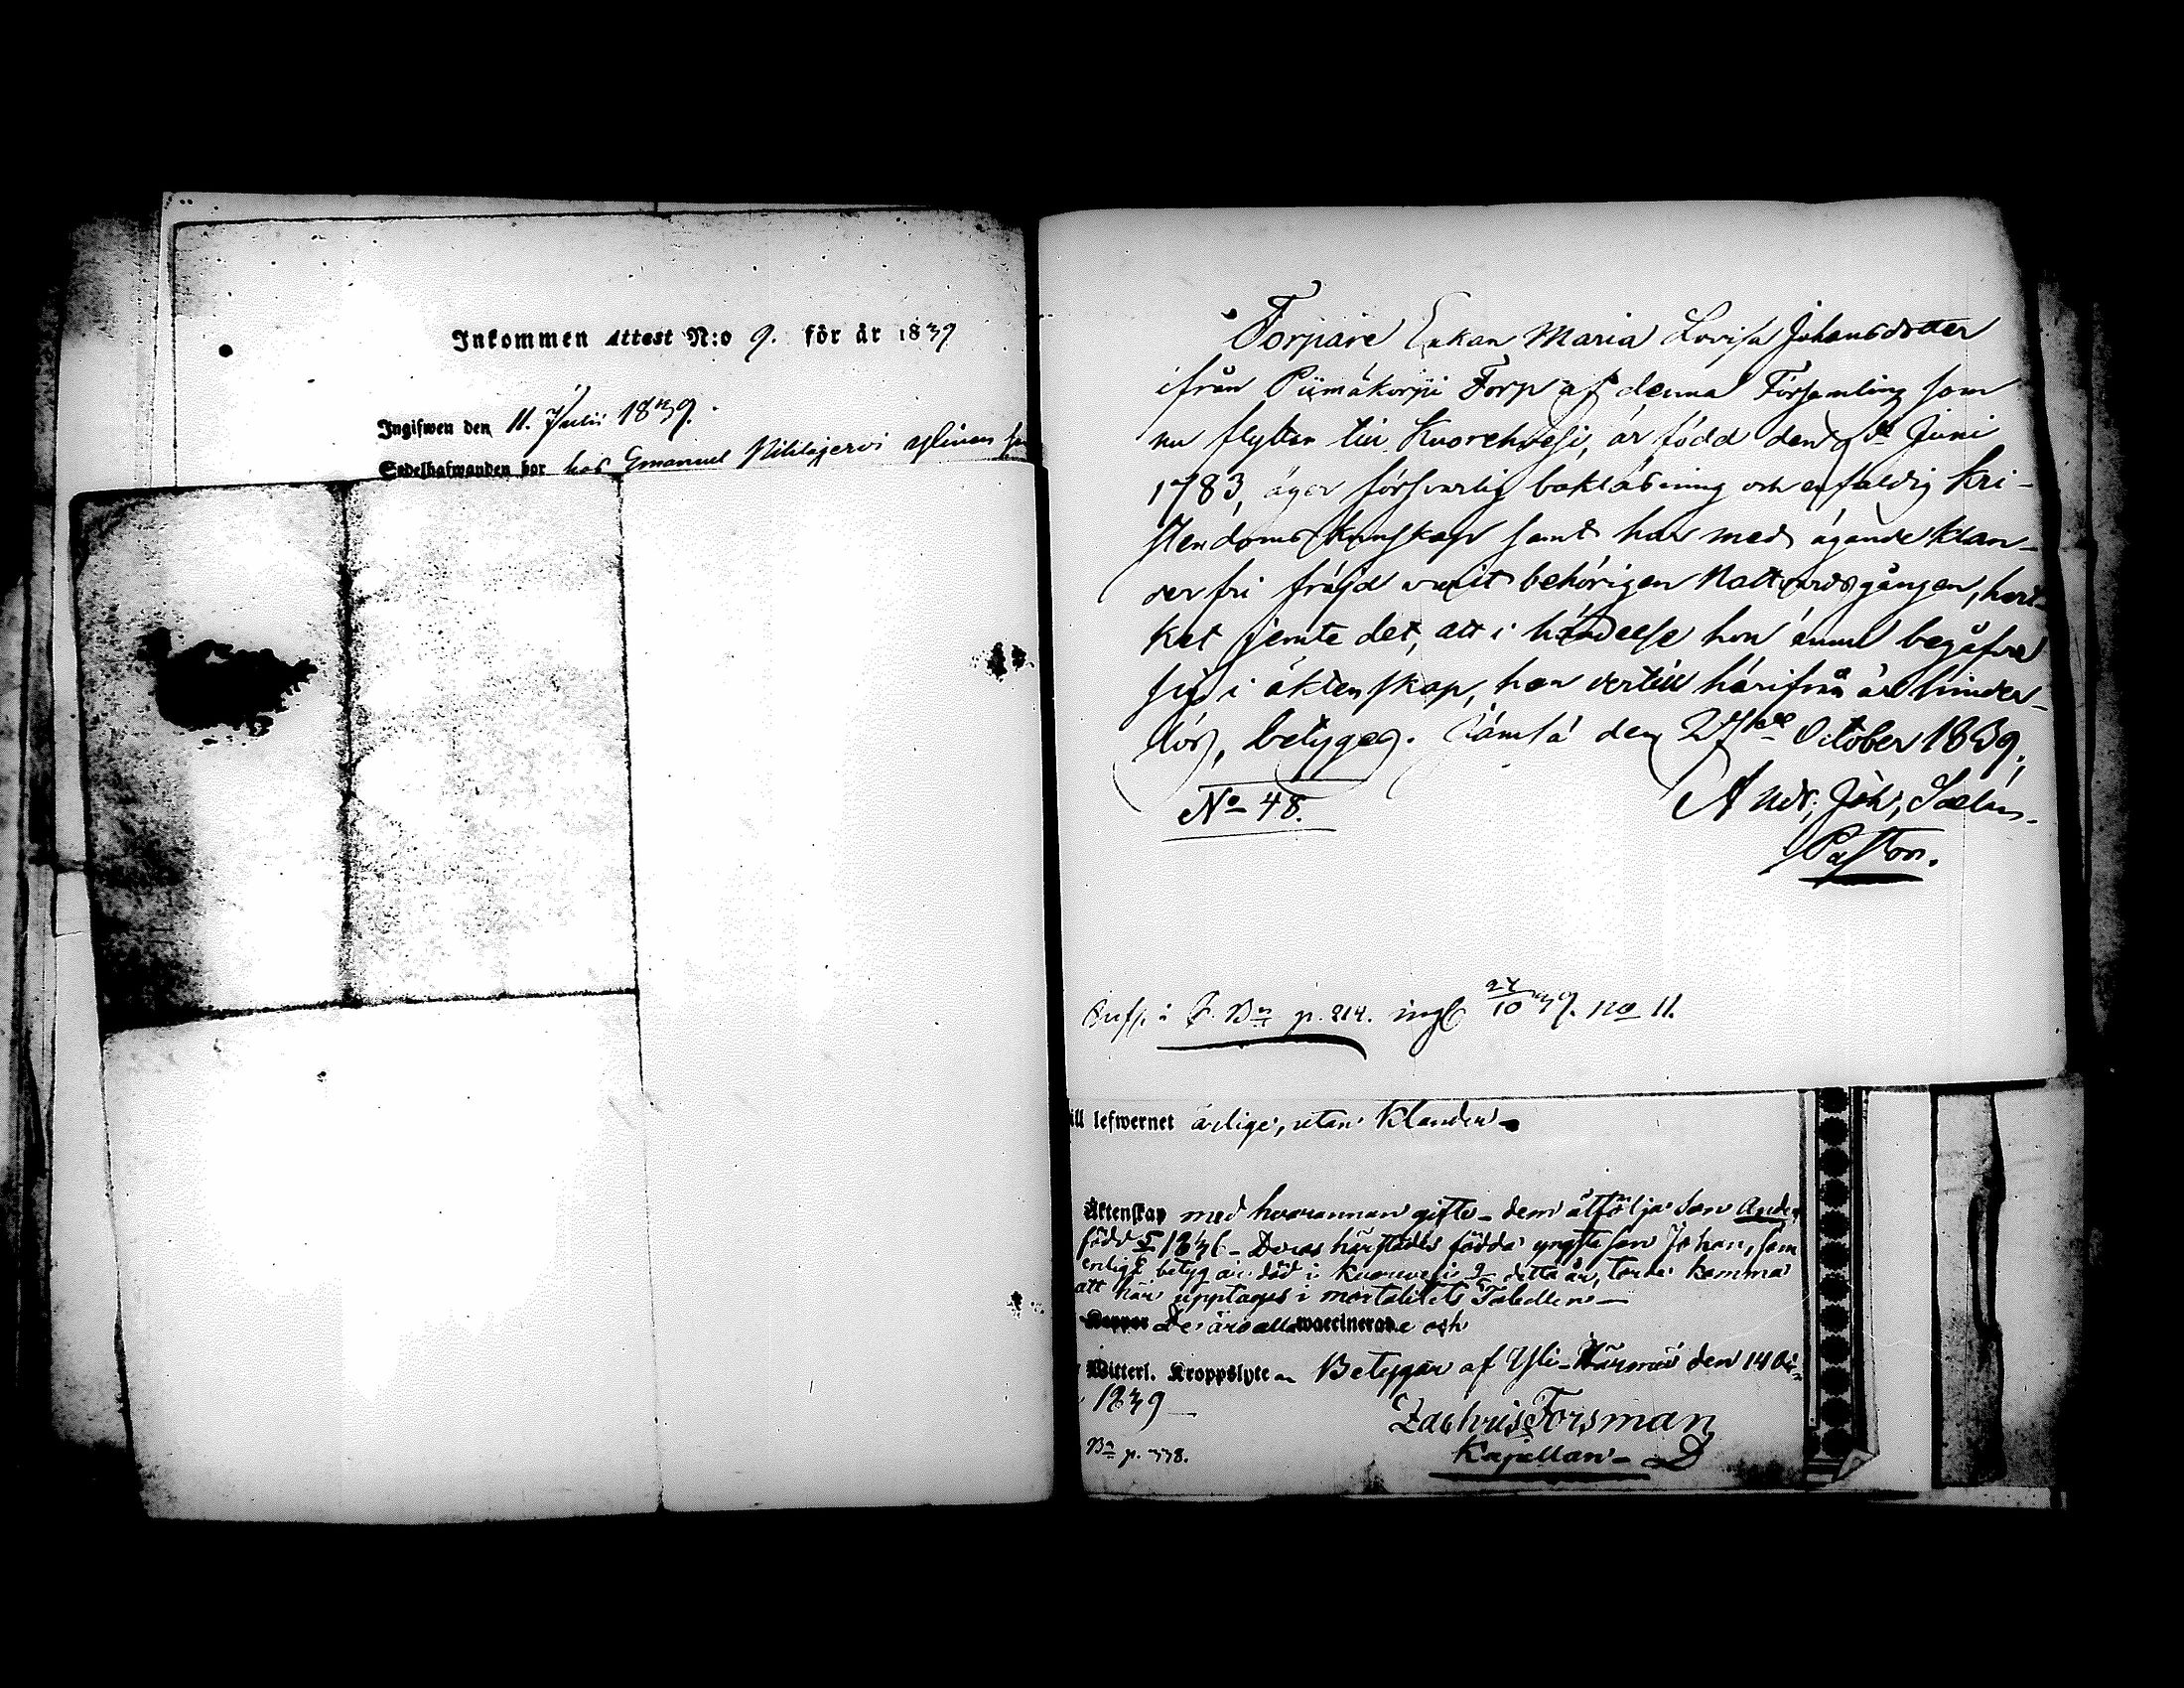 Inkommen Attest N:o 9. för år 1839
Ingifwen den 11. Julii 1839.
Sedelhafwanden bor hos Emanuel
Torpare Enkan Maria Lovisa Johansdotter
ifrån Piimäkorpi Torp af denna Församling som
nu flyttar till Kuorehvesi, är född den Juni
1783, äger försvarlig bokläsning och enfaldig Kri-
stendomskunskap samt har med ägande klan-
der fri fräjd varit behörigen Nattvardsgången, hvil-
ket jemte det, att i händelse hon ännu begåfve
sig i äktenskap, hon dertill härifrån är hinder-
lös, betygas. Jämsä den October 1839,
And. Joh.
No 48.
Pastor.
p. 214. 24/10 39. no 11.
till lefwernet ärlige, utan klander
Äktenskap med hvarannan gifte - dem åtföljer son
född Deras härstädes födda yngsta son Johan, som
enligt betyg är död i detta år, torde komma
att här upptages i mortalitets Tabellen
Koppor De äro alla vaccinerade och
Witterl. Kroppslyte Betygar af Yli-Härmä den 14
1839
Zachris Forsman
Kapellan
Bn p. 338.